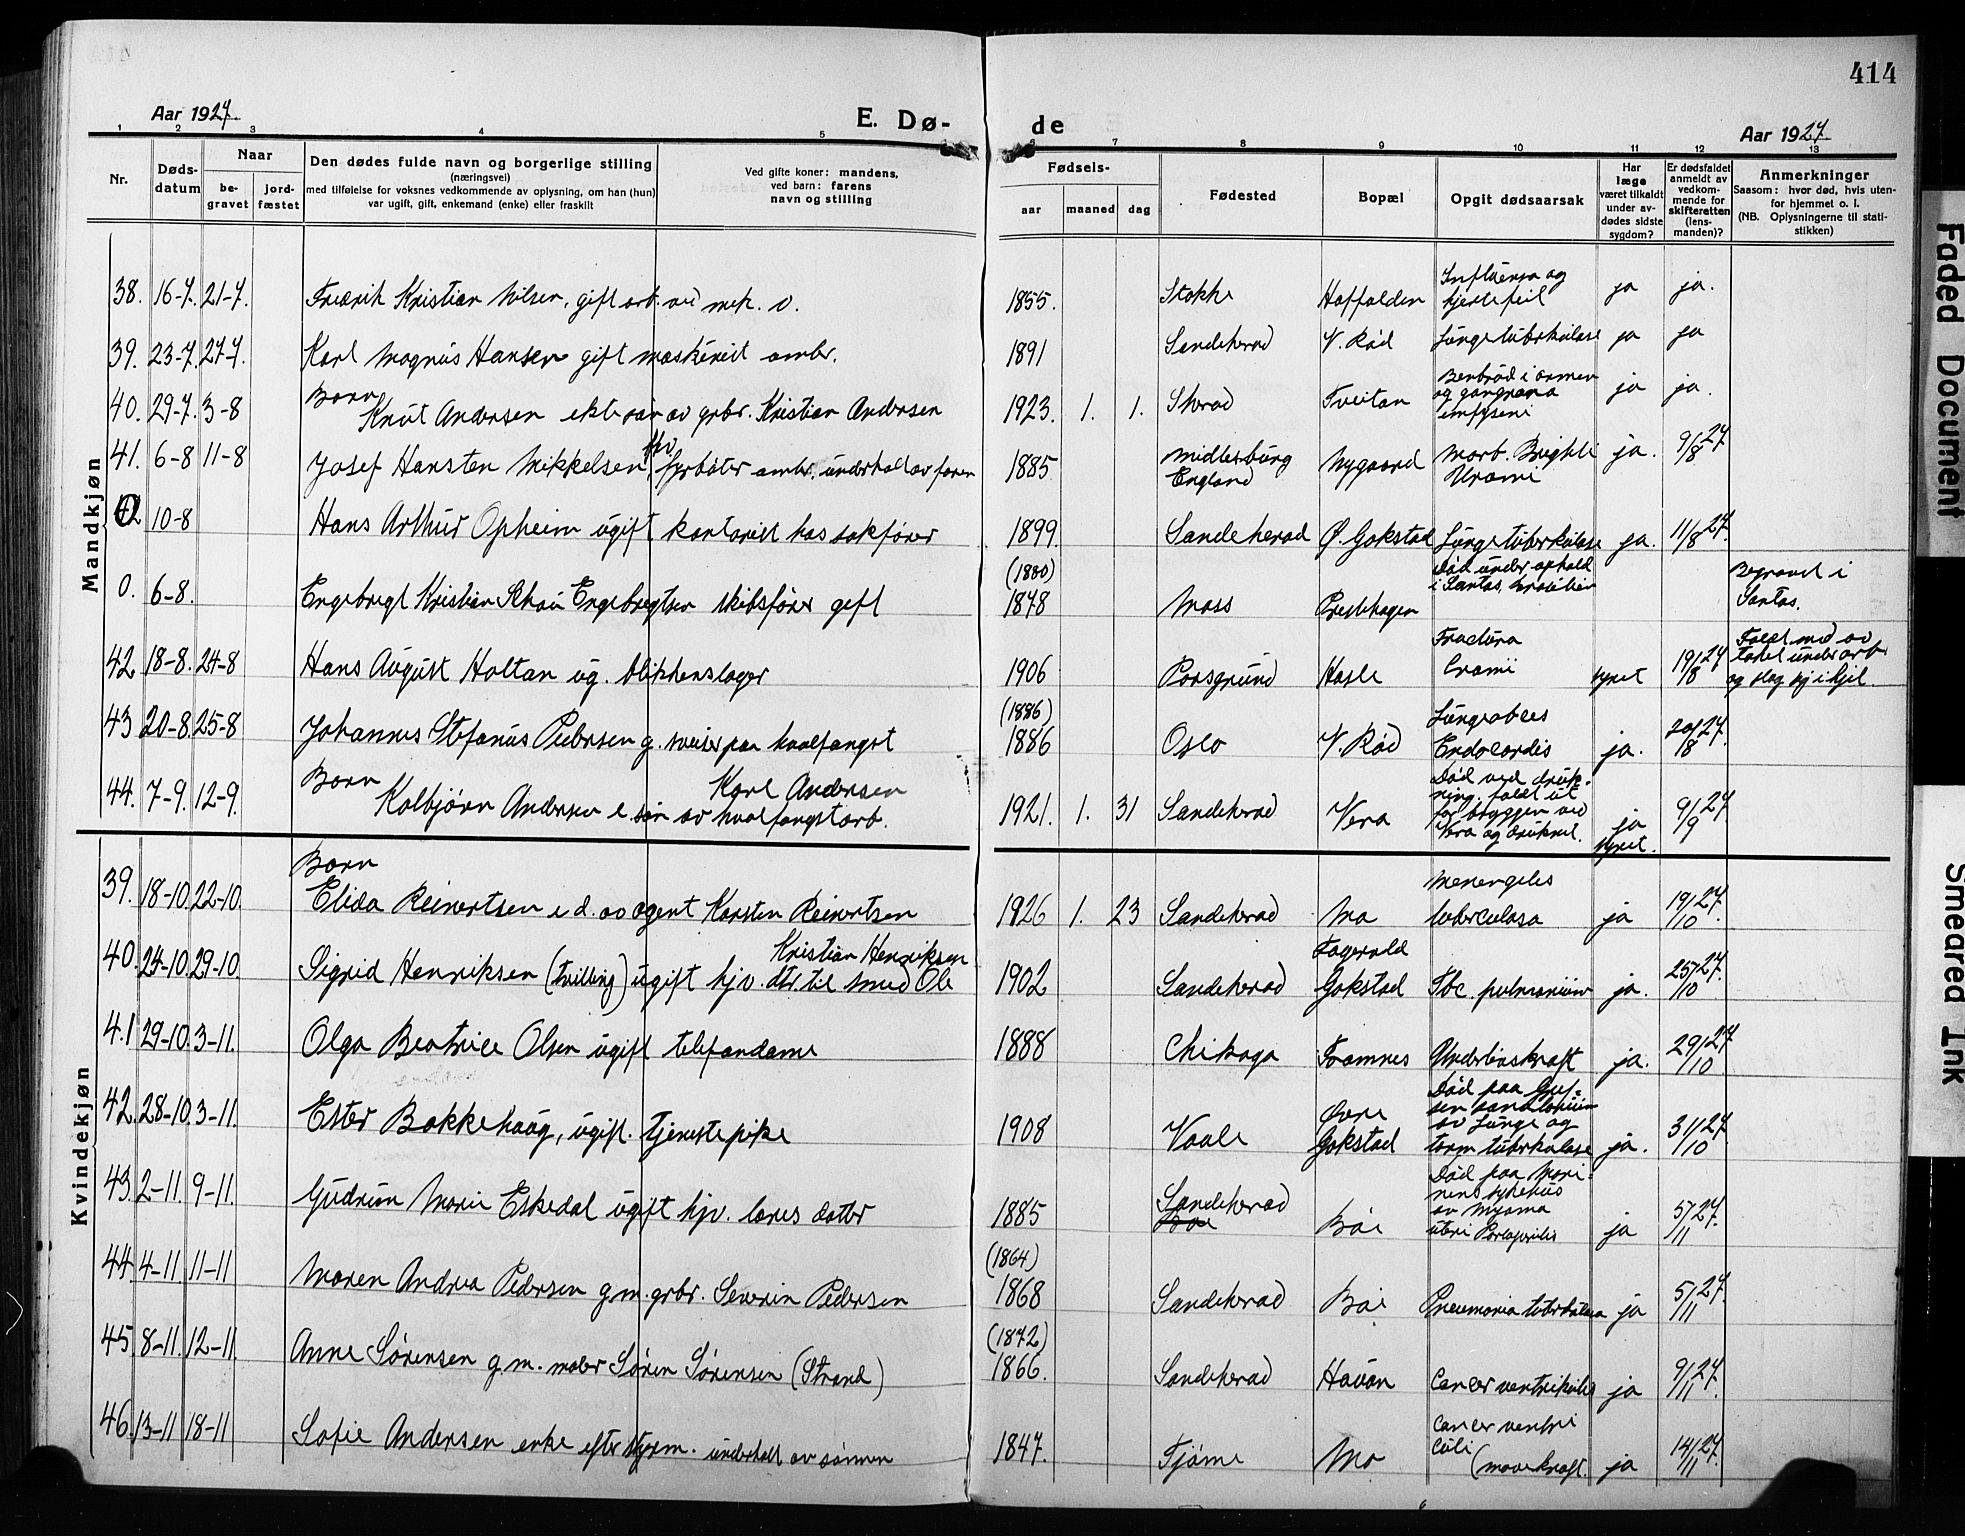 414
Aar 1927.
E. Dø-
de
Aar 1927
1 2 3 4 5 6 7 8 9 10 11 12 13
Nr.
Døds-
datum
Naar
be-
gravet
jord-
fæstet
Den dødes fulde navn og borgerlige stilling
(næringsvei)
med tilføielse for voksnes vedkommende av oplysning, om han (hun)
var ugift, gift, enkemand (enke) eller fraskilt
Ved gifte koner: mandens,
ved barn: farens
navn og stilling
Fødsels-
aar
maaned
dag
Fødested
Bopæl
Opgit dødsaarsak
Har
læge
været tilkaldt
under av-
dødes sidste
sygdom?
Er dødsfaldet
anmeldt av
vedkom-
mende for
skifteretten
(lens-
manden)?
Anmerkninger
Saasom: hvor død, hvis uten-
for hjemmet o. l.
(NB. Oplysningerne til stati-
stikken)
Mandkjøn
38. 16-7. 21-7. Fredrik Kristian Nilsen, gift arb. ved mek. v. 1855. Stokke Haffolden Influensa og
hjertefeil ja ja.
39. 23-7. 27-7. Karl Magnus Hansen gift maskinist ambr. 1891 Sandeherad V. Rød Lungetuberkulose ja ja
40. 29-7. 3-8 Barn
Knut Andersen ekte søn av grbr. Kristian Andersen 1923. 1. 1. Sherad Tveitan Benbrud i armen
og gangræna
emfyseni ja ja.
41. 6-8 11-8 Josef Hansten Mikkelsen, fyrbøter ambr. underhold av faren 1885. Midlesburg
England Nygaard Morb. Brighti
Uræmi ja. 9/8 27
42 10-8 Hans Arthur Opheim ugift kontorist hos sakfører 1899. Sandeherad Ø. Gokstad Lungetuberkulose ja. 11/8 27.
0. 6-8. Engebregt Kristian Schau Engebregtsen skibsfører gift (1880)
1878 Moss Prestehagen Død under ophold
i Santos, Brasilien Begravet i
Santos.
42. 18-8. 24-8 Hans August Holtan ug. blikkenslager 1906 Porsgrund Hasle Fractura
Cranii synet 19/8 27 Faldt ned av
taket under arb
og slog sig ihjel.
43 20-8. 25-8 Johannes Stefanus Pedersen g. sveiser paa hvalfangst (1886)
1886 Oslo V. Rød Lungeabces
Endocardis ja. 20/8 27.
44. 7-9. 12-9. Barn Karl Andersen
Kolbjørn Andersen e. søn av hvalfangstarb. 1921. 1. 31 Sandeherad Vera Død ved druk-
ning, faldt ut
for bryggen ved
Vera og druknet. ja
synet. 9/9 27
Kvindekjøn
39. 18-10. 22-10. Barn
Elida Reinertsen e.d. av agent Karsten Reinertsen 1926 1. 23 Sandeherad Mo Menengitis
tuberculosa ja 19/10 27.
40. 24-10. 29-10. Kristian Henriksen
Sigrid Henriksen (tvilling) ugift hjv. dtr. til smed Ole 1902 Sandeherad Fagervold
Gokstad Tbc. pulmonium ja. 25/10 27.
41 29-10. 3-11. Olga Beatrice Olsen ugift telefondame 1888 Chikago Framnes Underlivskræft ja. 29/10 27
42. 28-10. 3-11. Ester Bakkehaug, ugift. tjenestepike 1908 Vaale Øvre
Gokstad Død paa Gref-
sen sanatorium
av Lunge og
tarm tuberkulose ja. 31/10 27
43. 2-11. 9-11. Gudrun Marie Eskedal ugift hjv. lærers datter 1885 Sandeherad
Bøe Bøe Død paa Mari-
nens sykehus
av Myoma
uteri ja 5/11 27.
44. 4-11. 11-11 Maren Andrea Pedersen g.m. grbr. Severin Pedersen (1864)
1868 Sandeherad Bøe Pneumonia tuberkulosa ja 5/11 27.
45. 8-11. 12-11. Anne Sørensen g.m. maler Søren Sørensen (Strand) (1872)
1866. Sandeherad Havan Cancer ventrikulis ja 9/11 27.
46. 13-11 18-11 Sofie Andersen enke efter styrm. underholdt av sønnen 1847. Tjøme Mo Cancer ventri
culi
(mavekræft. ja 14/11 27.
Faded Document
Smeared Ink